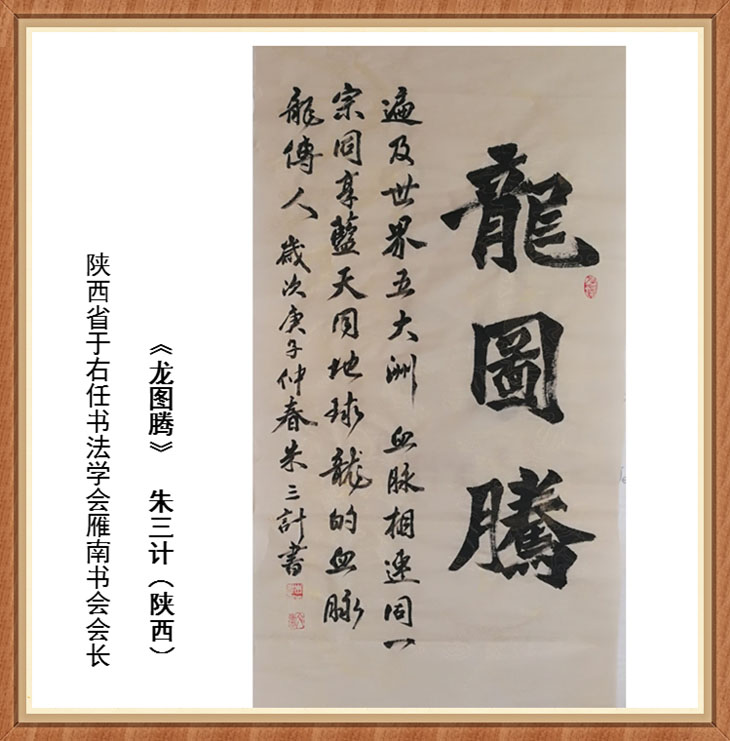 龍圖騰
遍及世界五大洲血脉相連同一
宗同享藍天同地球龍的血脉
龍傳人歲次庚子仲春朱三計書
《龙图腾》 朱三计（陕西）
陕西省于右任书法学会雁南书会会长